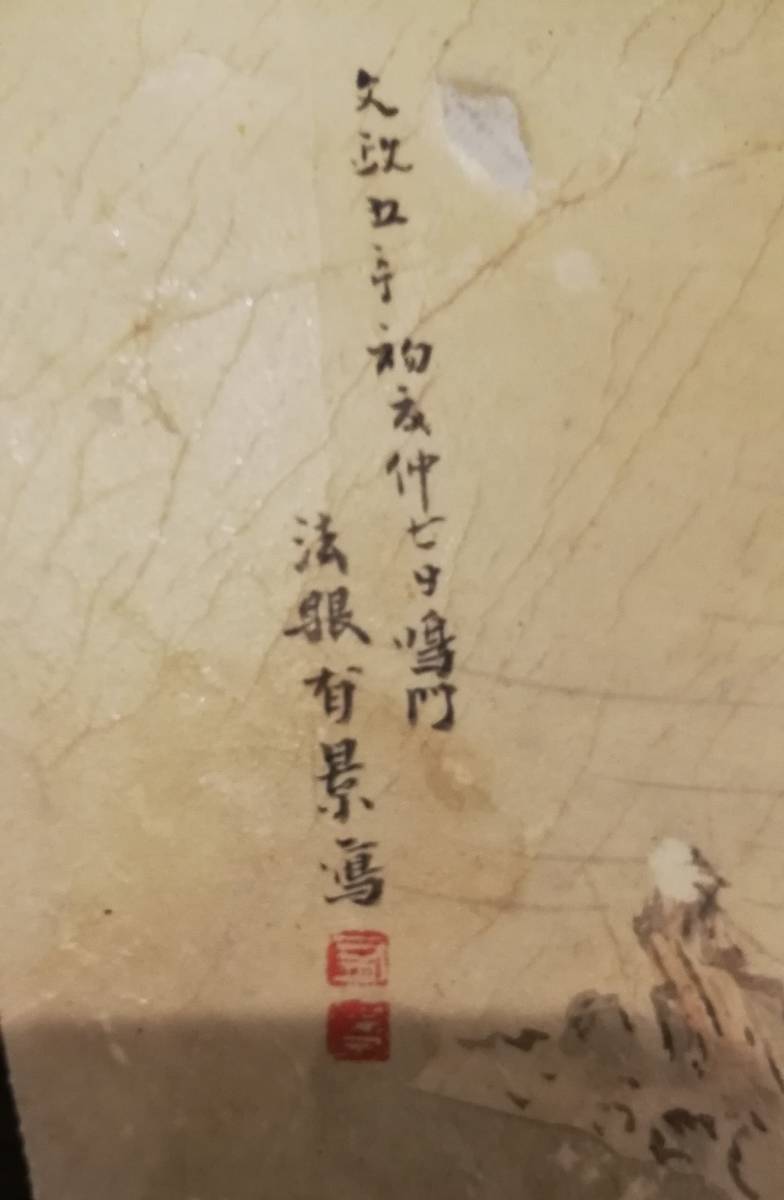 文政五年初夏仲七日鳴門
法眼有景寫